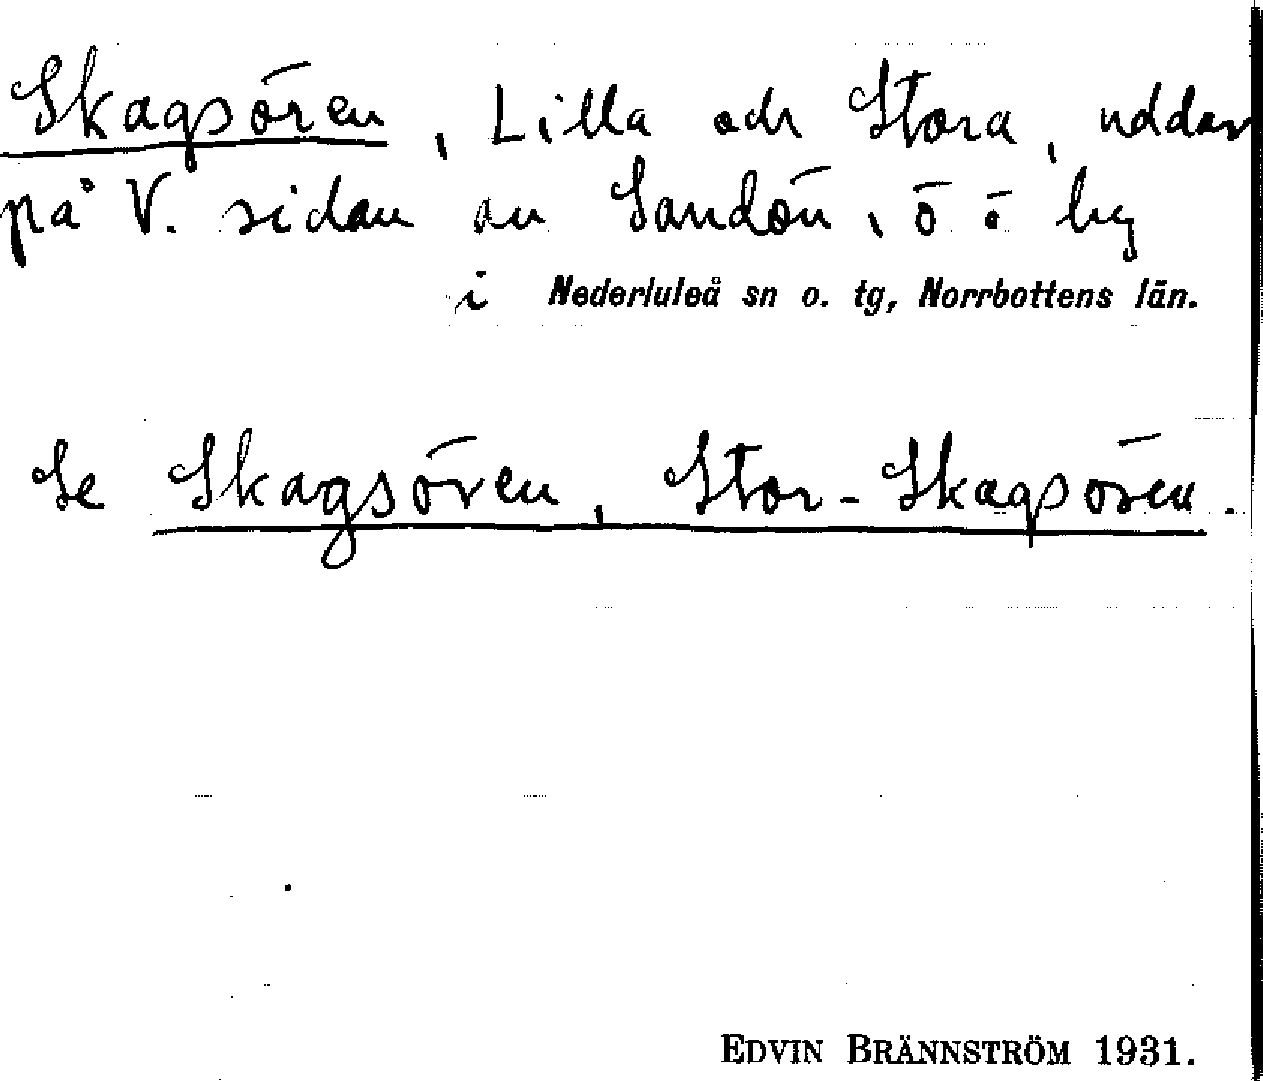 Skagsören, Lilla och Stora, uddar
på V. sidan av Sandön, ö o by
i Nederluleå sn o. tg, Norrbottens län.
Se Skagsören, Stor-Skagsören.
EDVIN BRÄNNSTRÖM 1931.